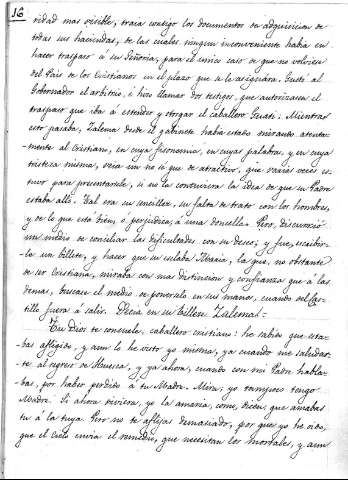 16
vidad mas visible, traia contigo los documentos de adquisicion de
todas sus haciendas, de las cuales ningun inconveniente habia en
hacer traspaso á su Señoria, para el unico caso de que no volviera
del Pais de los Cristianos en el plazo que se le asignára. Gustó al
Gobernador el arbitrio, é hizo llamar dos testigos, que autorizasen el
traspaso que iba á estender y otorgar el caballero Gusti. Mientras
esto pasaba, Zalema desde el gabinete habia estado mirando atenta-
mente al Cristiano, en cuya fisonomia, en cuyas palabras, y en cuya
tristeza misma, veia un no sé que de atractivo, que varias veces es-
tuvo para presentarse, si no la contuviera la idea de que su Padre
estaba alli. Tal era su sencillez, su falta de trato con los hombres,
y de lo que está bien, ó perjudica, á una doncella. Pero, discurrió
un medio de conciliar las dificultades con su deseo; y fue, escribir-
le un billete, y hacer que su esclava
la que, no obstante
de ser Cristiana, miraba con mas distincion y confianza que á las
demas, buscase el medio de ponerselo en sus manos, cuando del Cas-
tillo fuera á salir. Decia en su billete Zalema:=
Tu Dios te consuele, caballero cristiano: he sabido que esta-
bas afligido, y aun lo he visto yo misma, ya cuando me saludas-
te al regreso de Huesca, y ya ahora, cuando con mi Padre habla-
bas, por haber perdido á tu Madre. Mira, yo tampoco tengo
Madre. Si ahora viviera, yo la amaria, como, dicen, que amabas
tu á la tuya. Pero no te aflijas demasiado, por que yo he oido,
que el Cielo envia el remedio, que necesitan los mortales, y aun